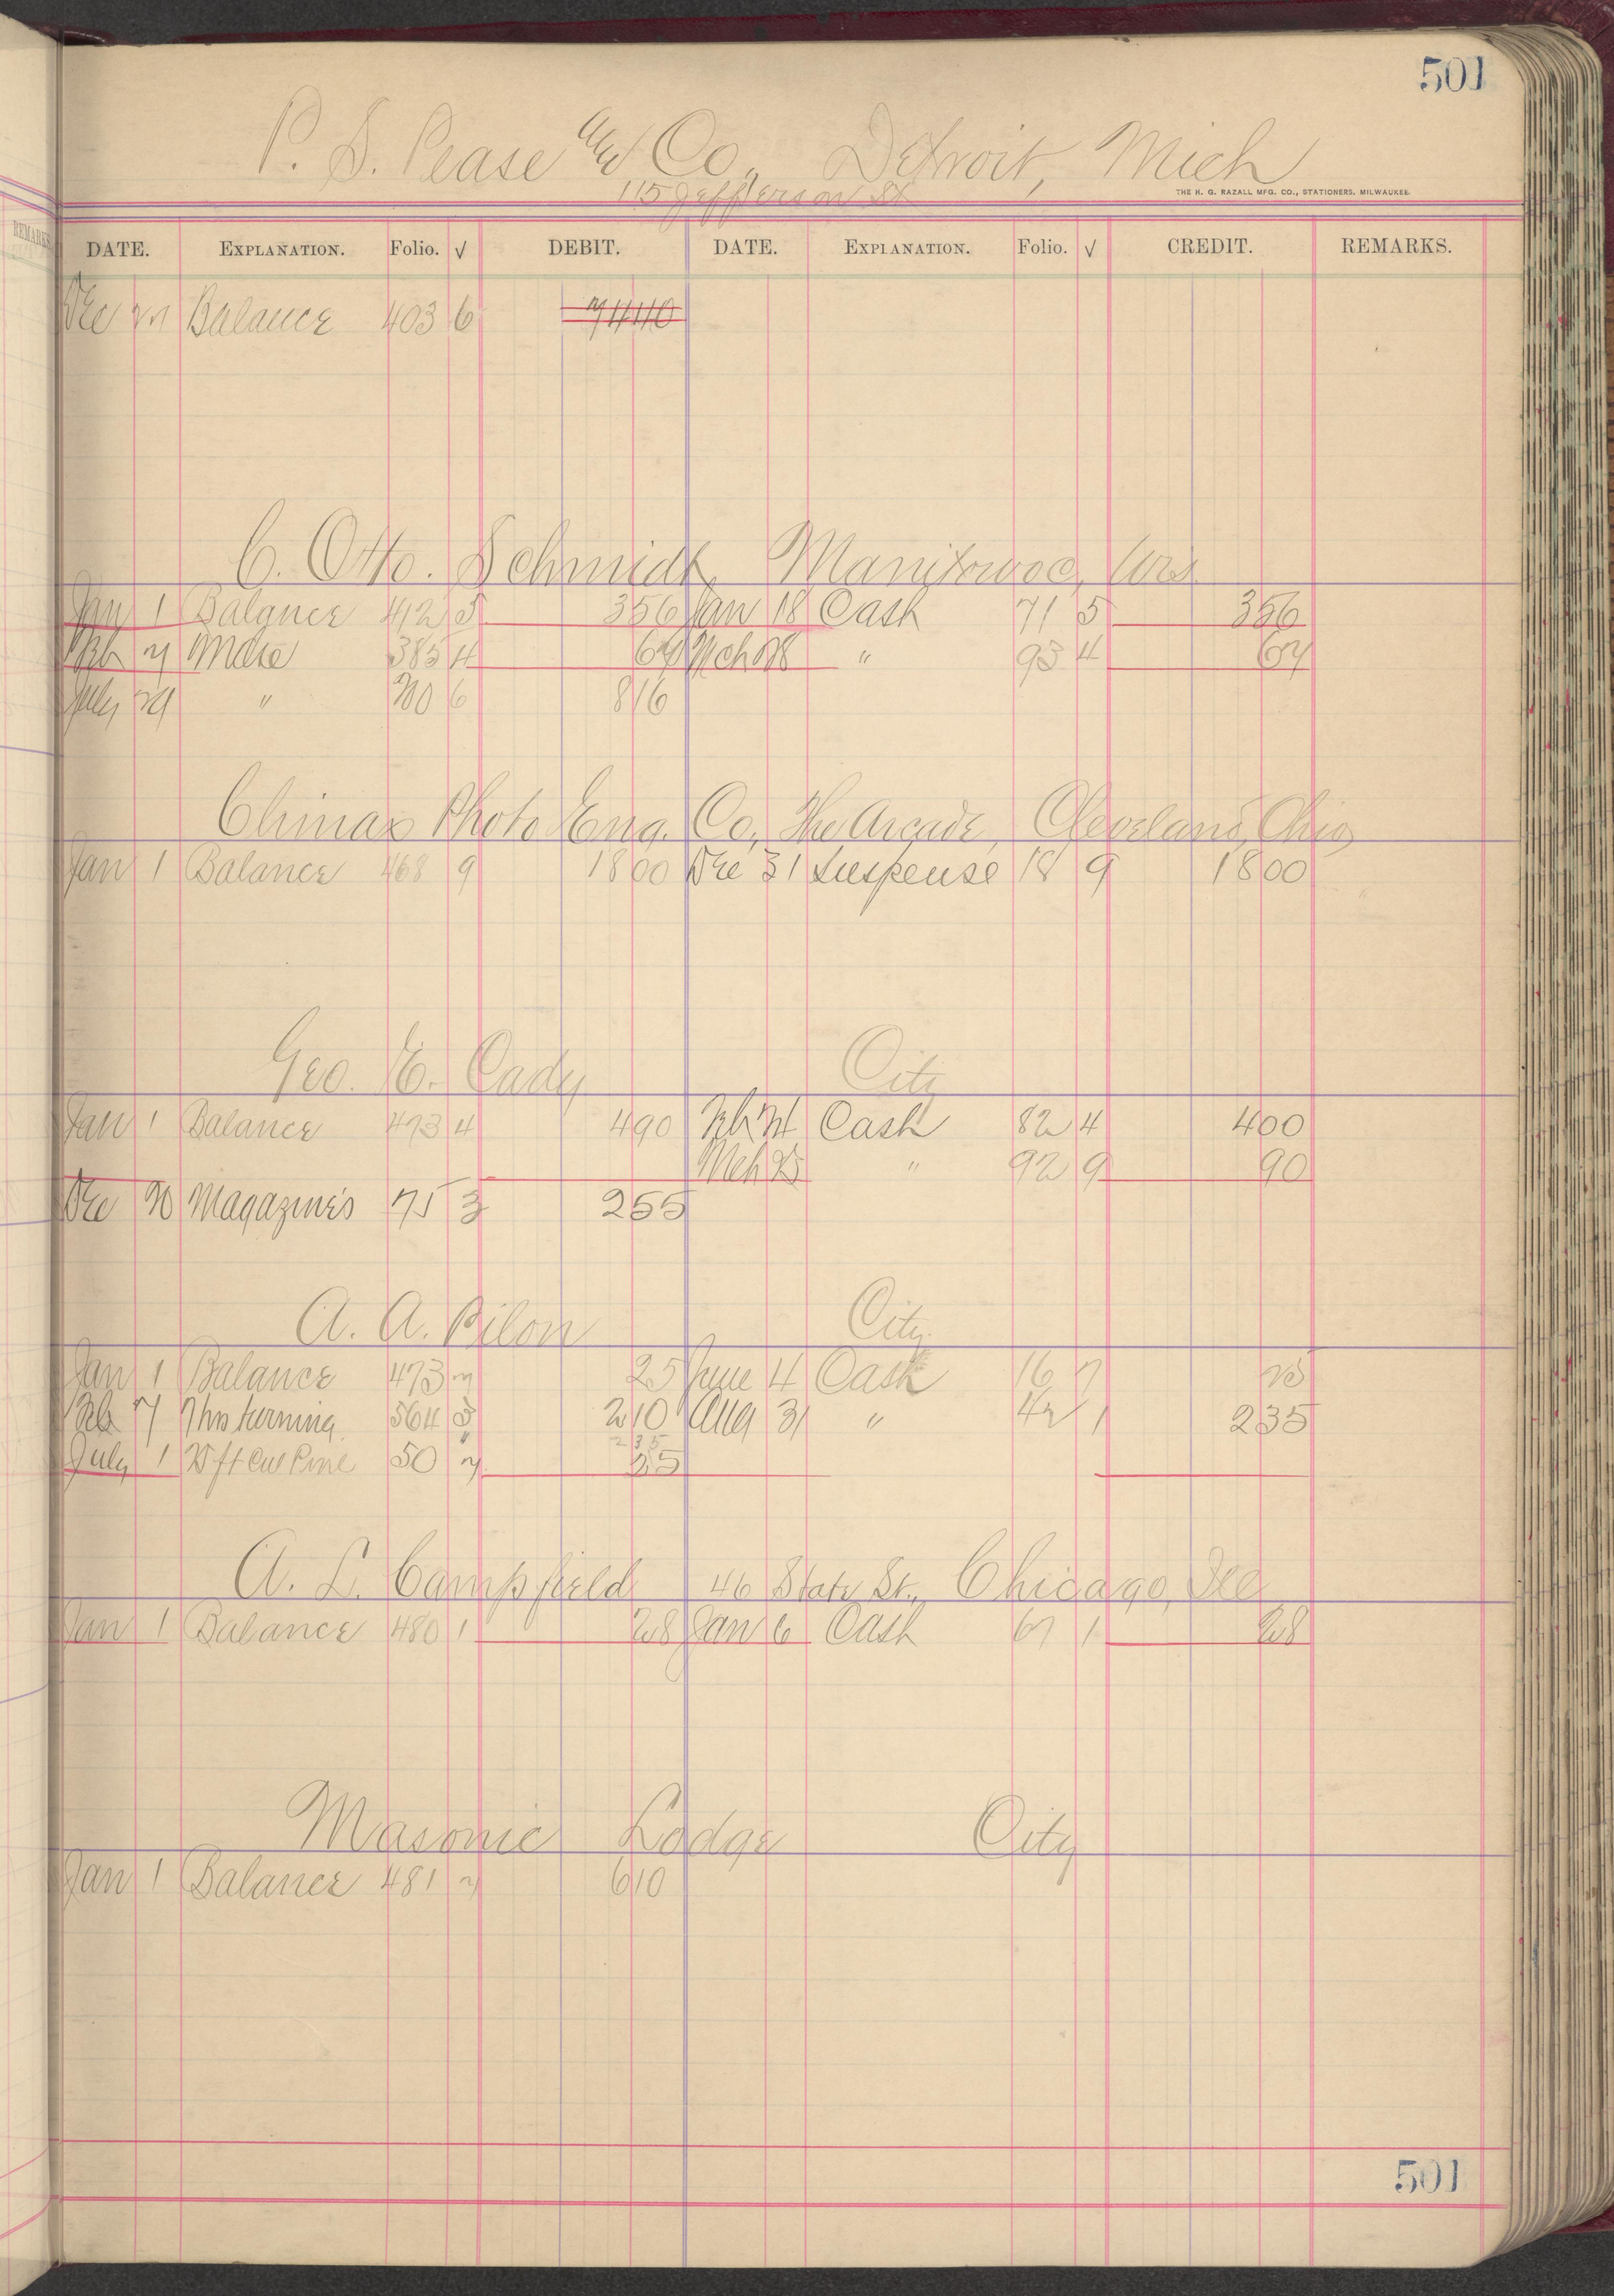 501
P. S. Pease and Co., Detroit, Mich
115 Jefferson St
THE H. G. RAZALL MFG. CO., STATIONERS. MILWAUKEE.
REMARKS
DATE. EXPLANATION. Folio. √ DEBIT. DATE. EXPLANATION. Folio. √ CREDIT. REMARKS.
Dec Balance 403 6 7440
C. Otto. Schmidt, Manitowoc, Wis
Jan 1 Balance 412 5 356 Jan 18 Cash 71 5 356
Feb 7 Mdse 385 4 67 Mch 28 " 93 4 67
July 29 " 70 6 816
Climax Photo Eng. Co, The Arcade, Cleveland, Ohio
Jan 1 Balance 468 9 1800 Dec 31 Suspense 18 9 1800
Geo. E. Cady City
Jan 1 Balance 473 4 490 Feb 24 Cash 82 4 400
Mch 25 " 92 9 90
Dec 20 Magazines 75 3 255
A. A. Bilon City
Jan 1 Balance 473 7 25 June 4 Cash 16 7 25
Feb 7 7 hrs turning 564 3 210 Aug 31 " 42 1 235
235
July 1 25 ft Cul Pine 50 7 25
A. L. Campfield 46 State St., Chicago, Ill
Jan 1 Balance 480 1 28 Jan 6 Cash 67 1 28
Masonic Lodge City
Jan 1 Balance 481 7 610
501